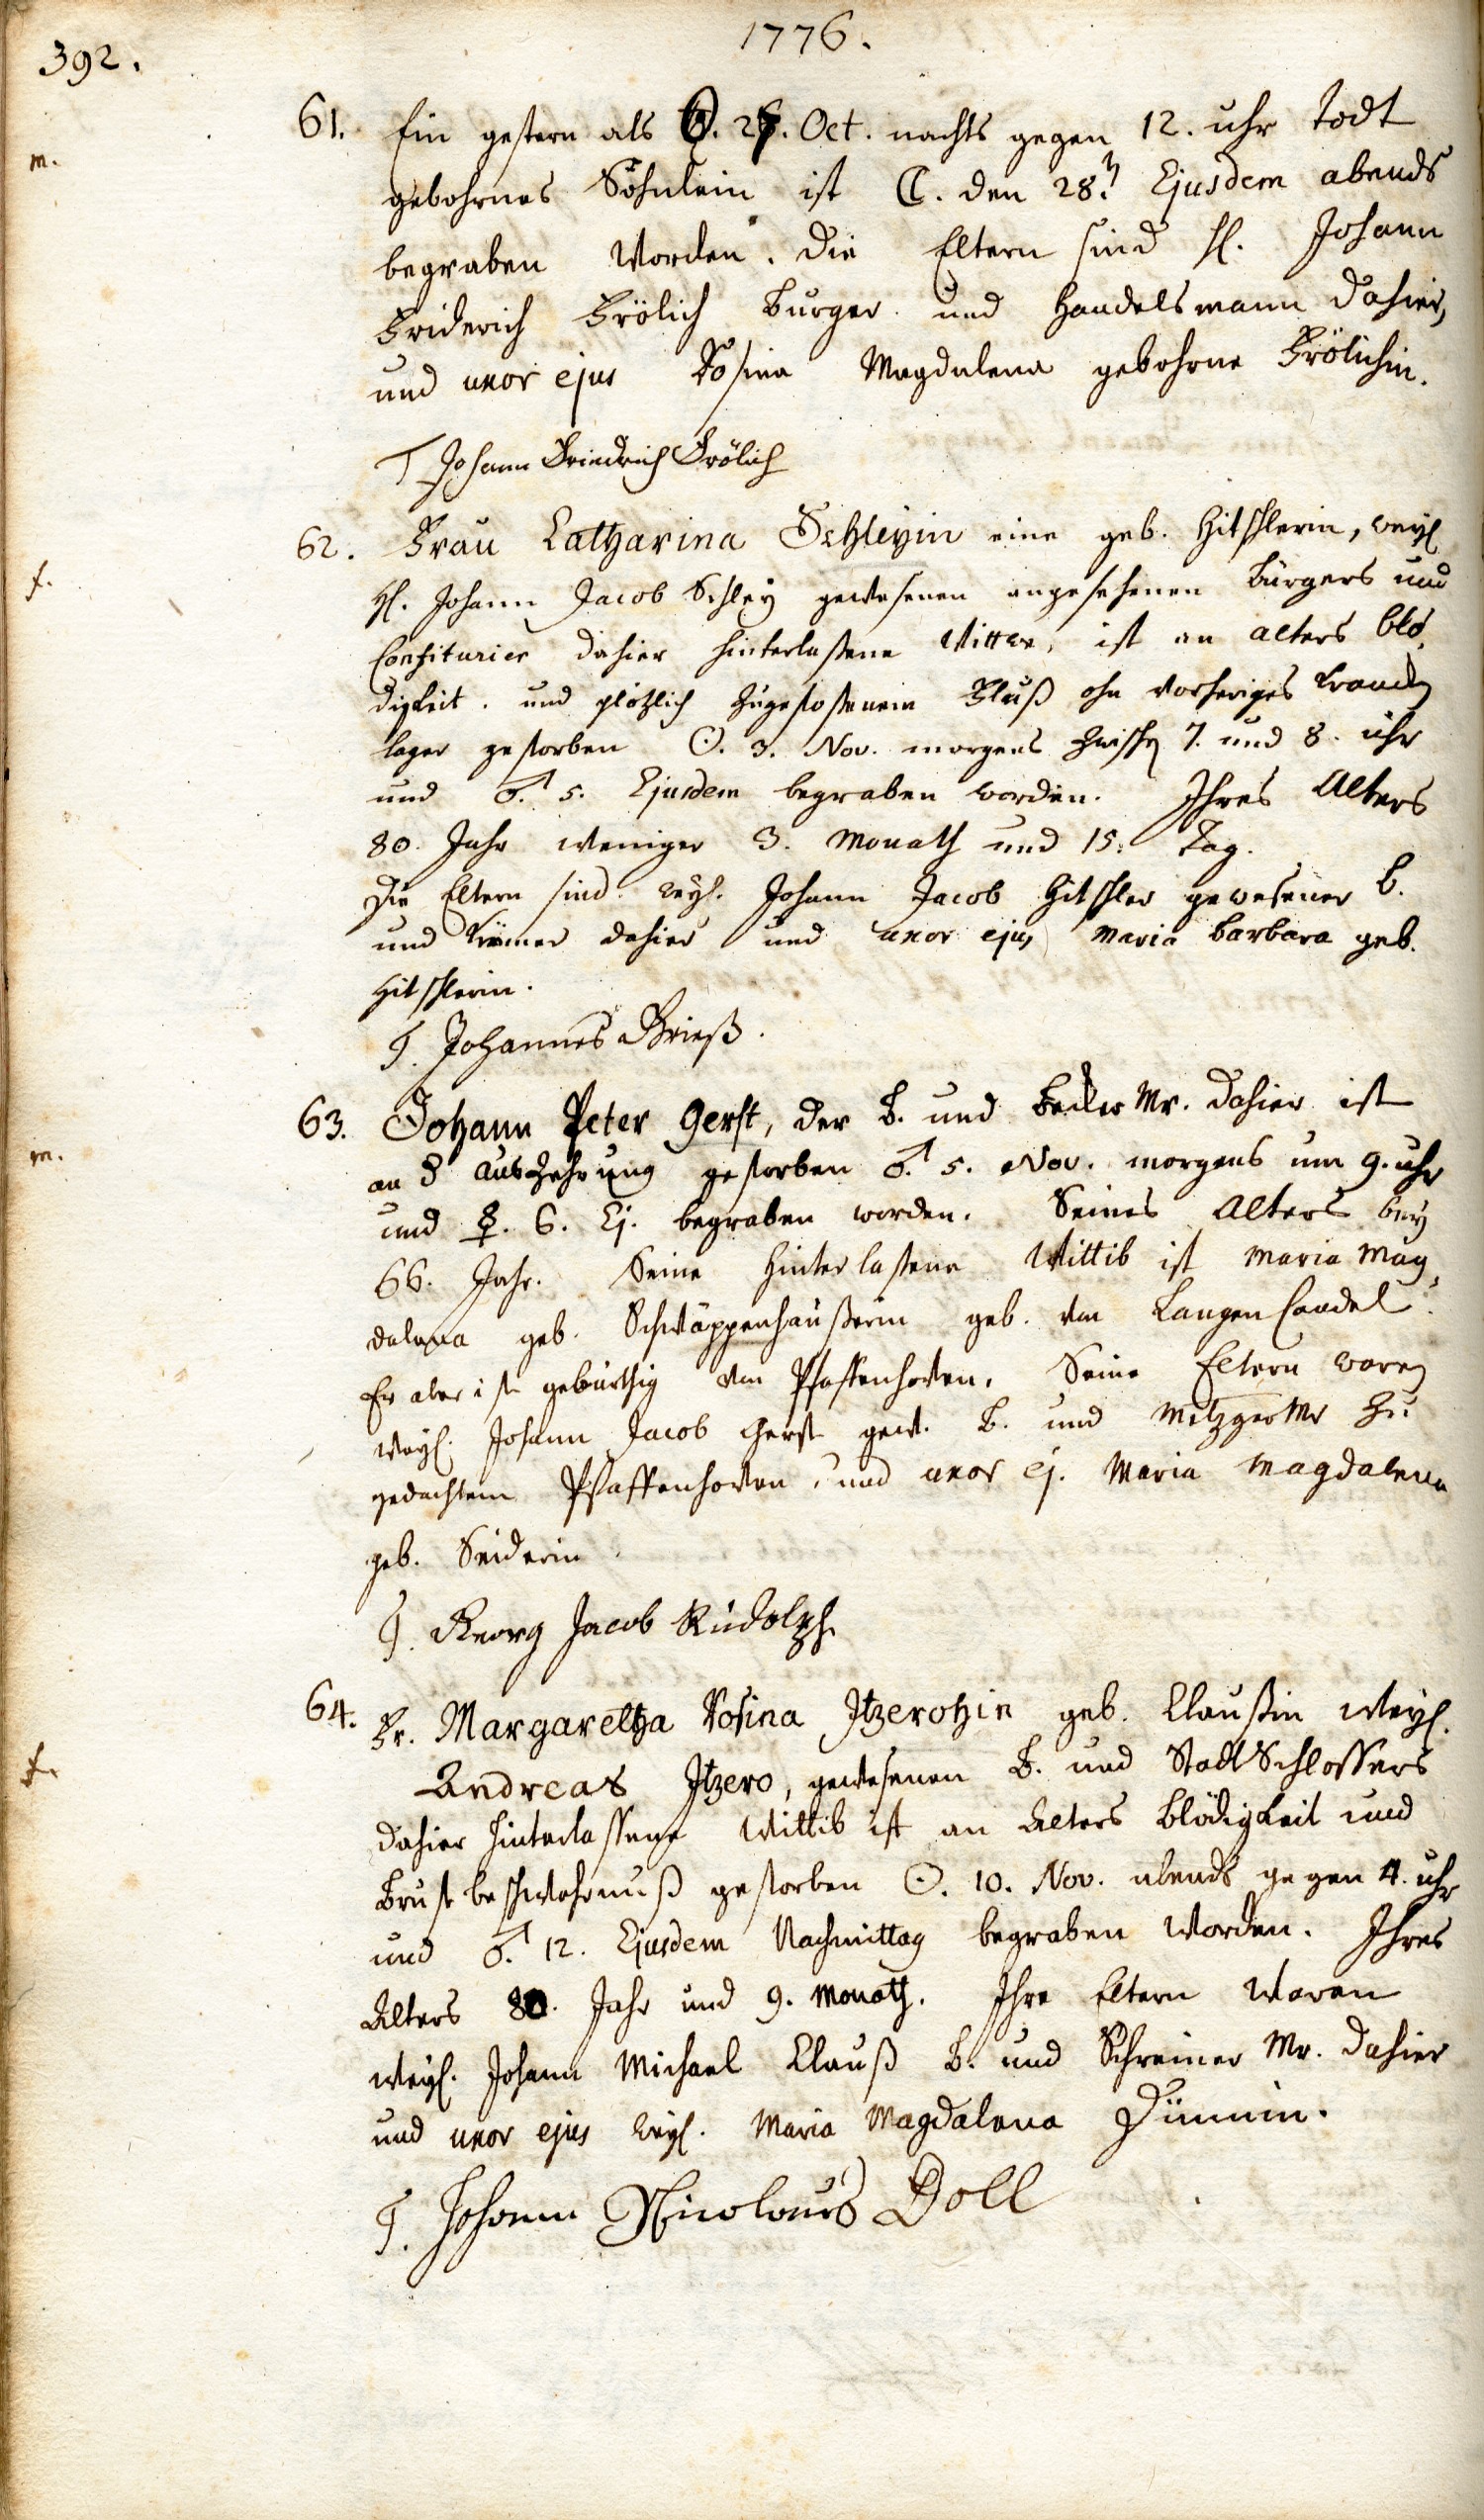 1776.
392.
61. Ein gestern als ☉. 27. Oct. nachts gegen 12. uhr todt
m.
gebohrnes Söhnlein ist ☾. den 28.ⁿ Ejusdem abends
begraben worden. Die Eltern sind H. Johann
Friderich Frölich burger und Handelsmann dahier,
und uxor ejus Rosina Magdalena gebohrne Frölichin.
T Johann Friedrich Frölich
62. Frau Catharina Schleyin eine geb. Hitschlerin, weyl
f.
H. Johann Jacob Schley gewesenen angesehenen burgers und
Confiturier dahier hinterlaßene Wittwe, ist an alters blö,
digkeit. und plötzlich zugestoßenem Fluß ohn vorheriges Krancken
lager gestorben ☉. 3. Nov. morgens zwischen 7. und 8. uhr
und ♂. 5. Ejusdem begraben worden. Ihres Alters
80. Jahr weniger 3. Monath und 15. Tag.
Die Eltern sind weyl. Johann Jacob Hitschler gewesener b.
und Krämer dahier und uxor ejus Maria barbara geb.
Hitschlerin.
T. Johannes Grieß.
63. Johann Peter Gerst, der B. und Becker Mr. dahier ist
m.
an d Auszehrung gestorben ♂. 5. Nov. morgens um 9. uhr
und ☿. 6. Ej. begraben worden. Seines Alters bey
66. Jahr. Seine Hinterlaßene Wittib ist Maria Mag,
dalena geb. Schwäppenhäußerin geb. von Langen Candel.
Er aber ist gebürthig von Pfaffenhoven. Seine Eltern waren
weyl. Johann Jacob Gerst gew. B. und MetzgerMr zu
gedachtem Pfaffenhoven, und uxor ej. Maria Magdalena
geb. Seiderin
T. Georg Jacob Rudolph
64. Fr. Margaretha Rosina Itzerothin geb. Claußin weyl.
f.
Andreas Itzero, gewesenen B. und StadtSchlossers
dahier hinterlassene Wittib ist an Alters blödigkeit und
Brust beschwehrnuß gestorben ☉. 10. Nov. abends gegen 4. uhr
und ♂. 12. Ejusdem Nachmittag begraben worden. Ihres
Alters 80. Jahr und 9. Monath. Ihre Eltern waren
weyl. Johann Michael Clauß B. und Schreiner Mr. dahier
und uxor ejus weyl. Maria Magdalena
T. Johann Nicolaus Doll